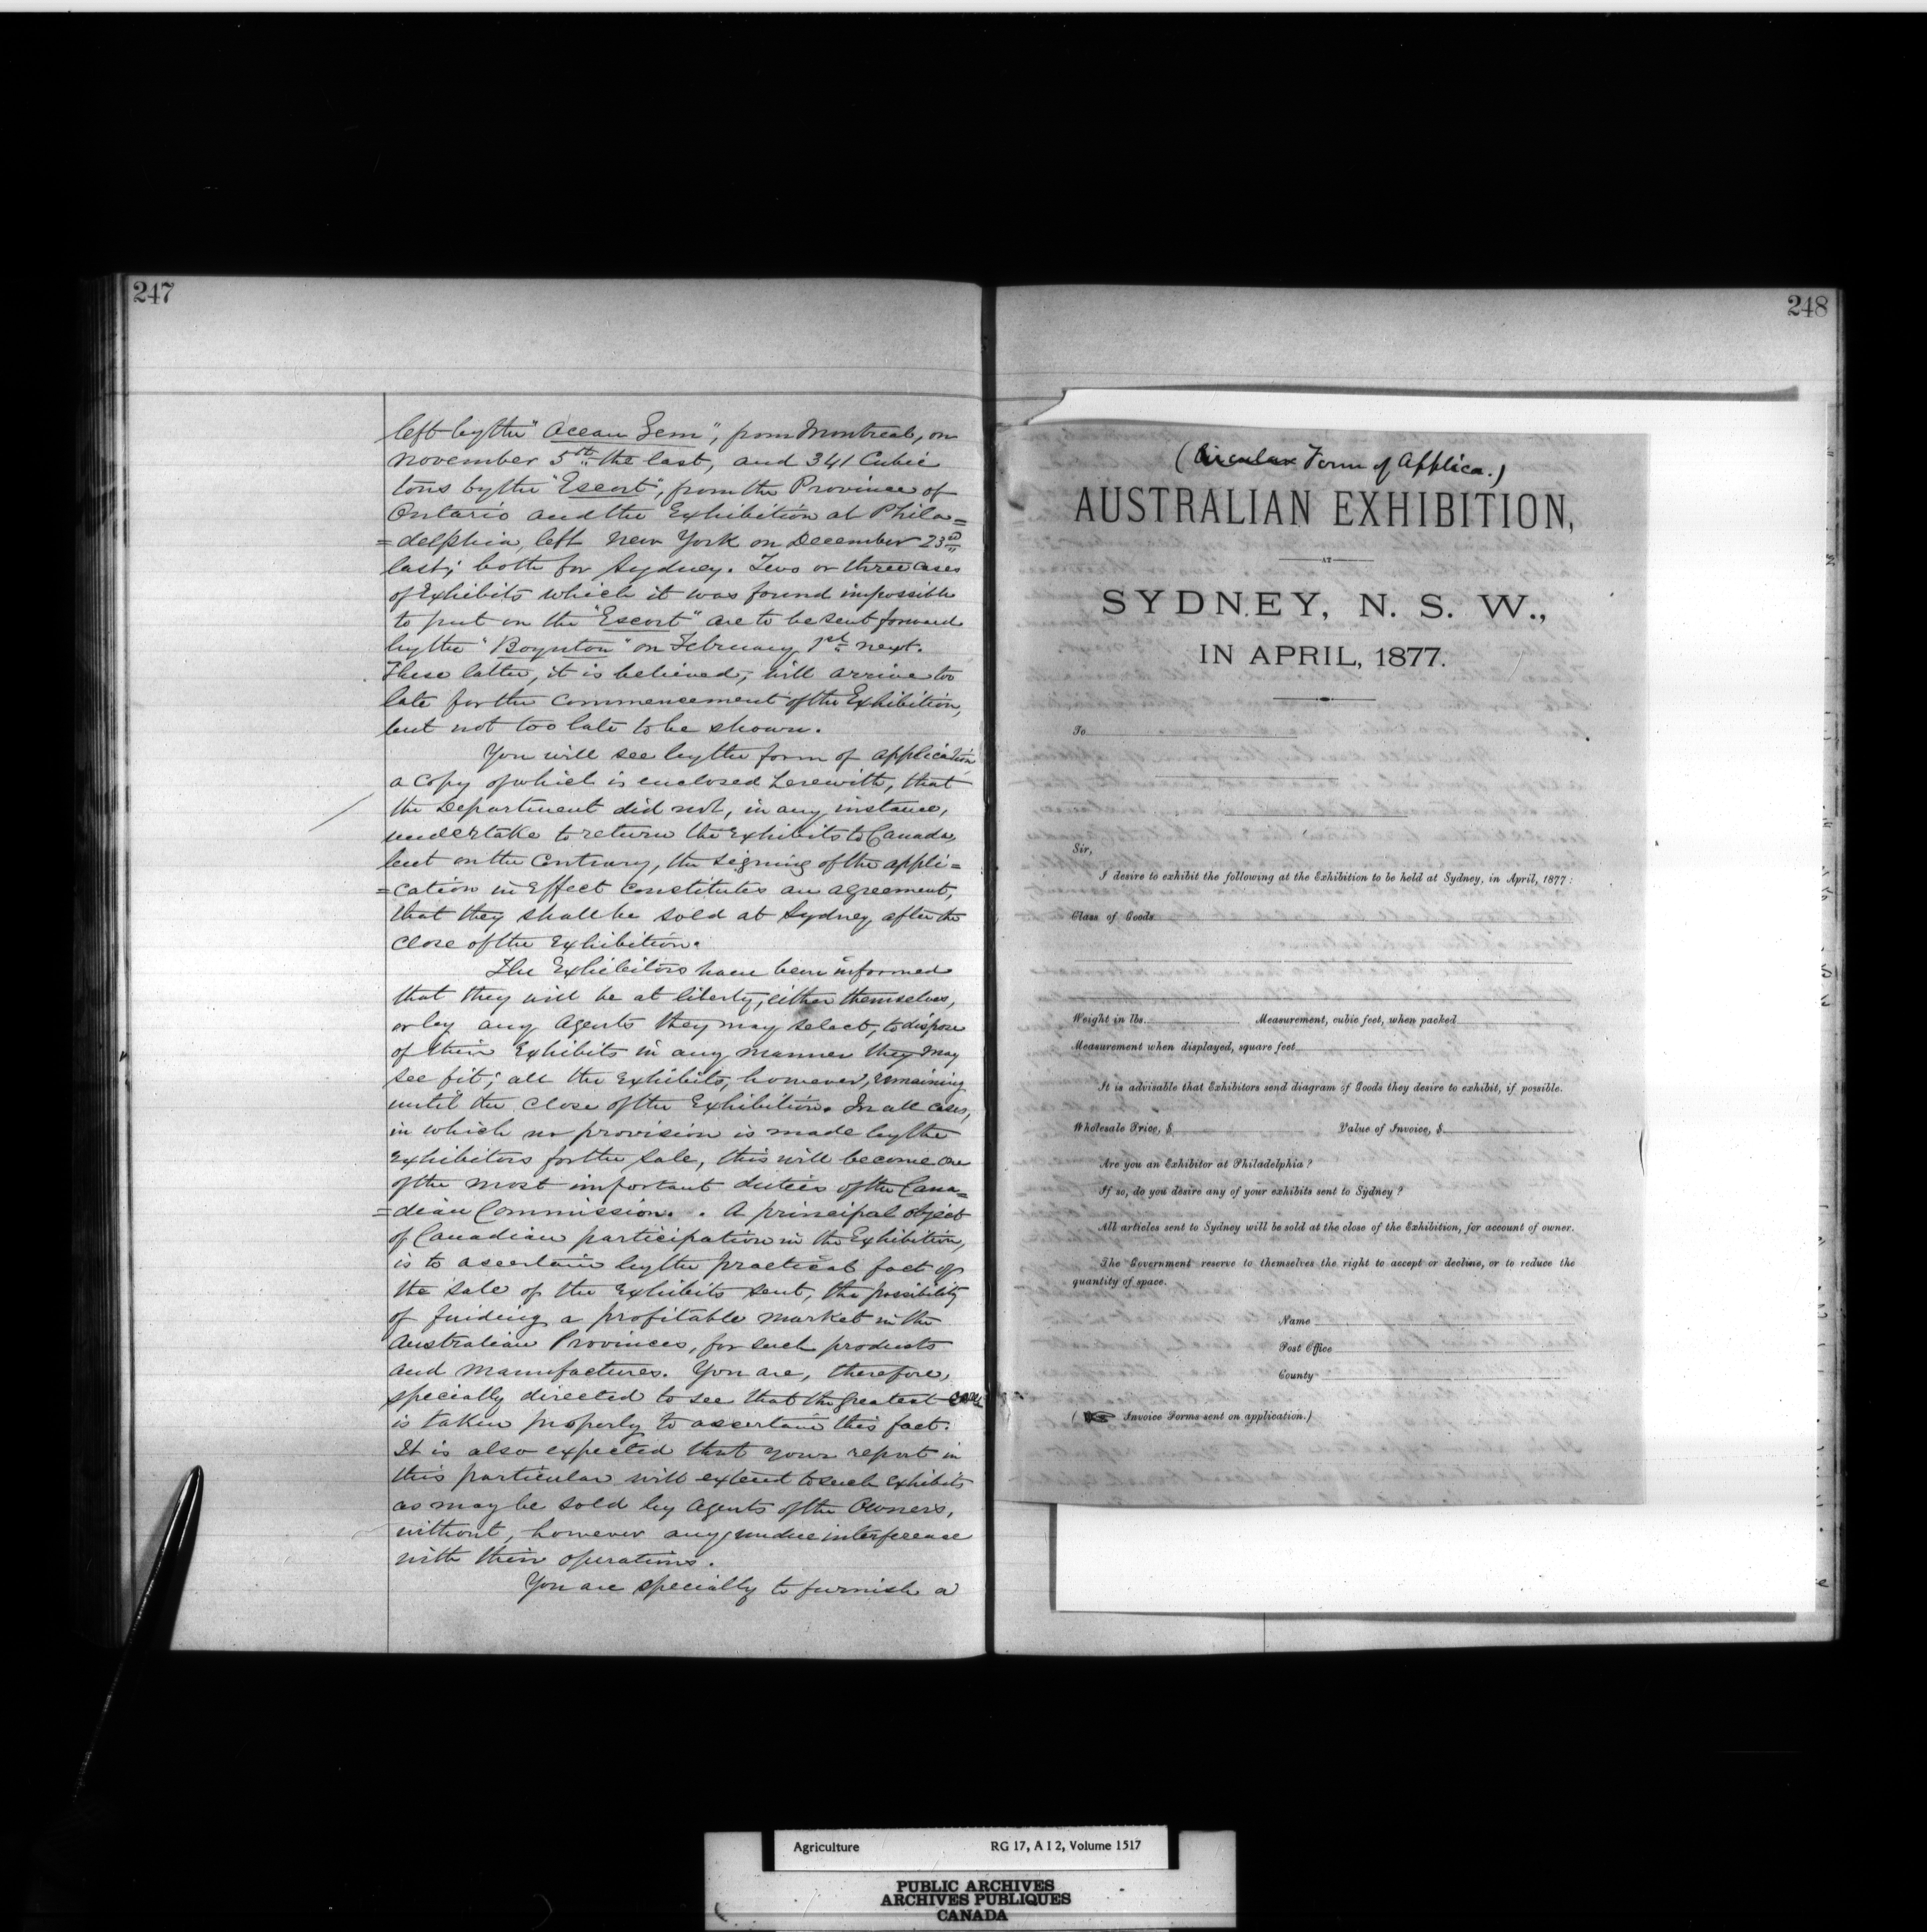 247
left by the "Ocean Gem", from Montreal, on
November 5th the last, and 341 Cubic
tons by the "Escort", from the Province of
Ontario and the Exhibition at Phila=
=delphia left New York on December 23rd
last; both for Sydney. Two or three cases
of Exhibits which it was found impossible
to put on the "Escort" are to be sent forward
by the "Boynton" on February 1st next.
These latter, it is believed, will arrive too
late for the Commencement of the Exhibition,
but not too late to be shown.
You will see by the form of application
a copy of which is enclosed herewith, that
the Department did not, in any instance,
undertake to return the Exhibits to Canada,
but on the Contrary, the signing of the appli=
=cation in Effect Constitutes an agreement,
that they shall be sold at Sydney after the
Close of the Exhibition.
The Exhibitors have been informed
that they will be at liberty, either themselves,
or by any Agents they may select, to dispose
of their Exhibits in any manner they may
see fit; all the Exhibits, however, remaining
until the Close of the Exhibition. In all cases,
in which no provision is made by the
Exhibitors for the Sale, this will become one
of the most important duties of the Cana=
=dian Commission. A principal object
of Canadian participation in the Exhibition,
is to ascertain by the practical fact of
the sale of the Exhibits sent, the possibility
of finding a profitable market in the
Australian Provinces, for such products
and Manufactures. You are, therefore,
specially directed to see that the greatest care
is taken properly to ascertain this fact.
It is also expected that your report in
this particular will extend to such Exhibits
as may be sold by Agents of the Owners,
without, however any undue interference
with their operations.
You are specially to furnish a
248
(Circular Form of Applica.)
AUSTRALIAN EXHIBITION,
AT
SYDNEY, N. S. W.,
IN APRIL, 1877.
To
Sir,
I desire to exhibit the following at the Exhibition to be held at Sydney, in April, 1877:
Class of Goods
Weight in lbs. Measurement, cubic feet, when packed
Measurement when displayed, square feet
It is advisable that Exhibitors send diagram of Goods they desire to exhibit, if possible.
Wholesale Price, $ Value of Invoice, $
Are you an Exhibitor at Philadelphia?
If so, do you desire any of your exhibits sent to Sydney?
All articles sent to Sydney will be sold at the close of the Exhibition, for account of owner.
The Government reserve to themselves the right to accept or decline, or to reduce the
quantity of space.
Name
Post Office
County
(☞ Invoice Forms sent on application.)
Agriculture RG 17, A I 2, Volume 1517
PUBLIC ARCHIVES
ARCHIVES PUBLIQUES
CANADA